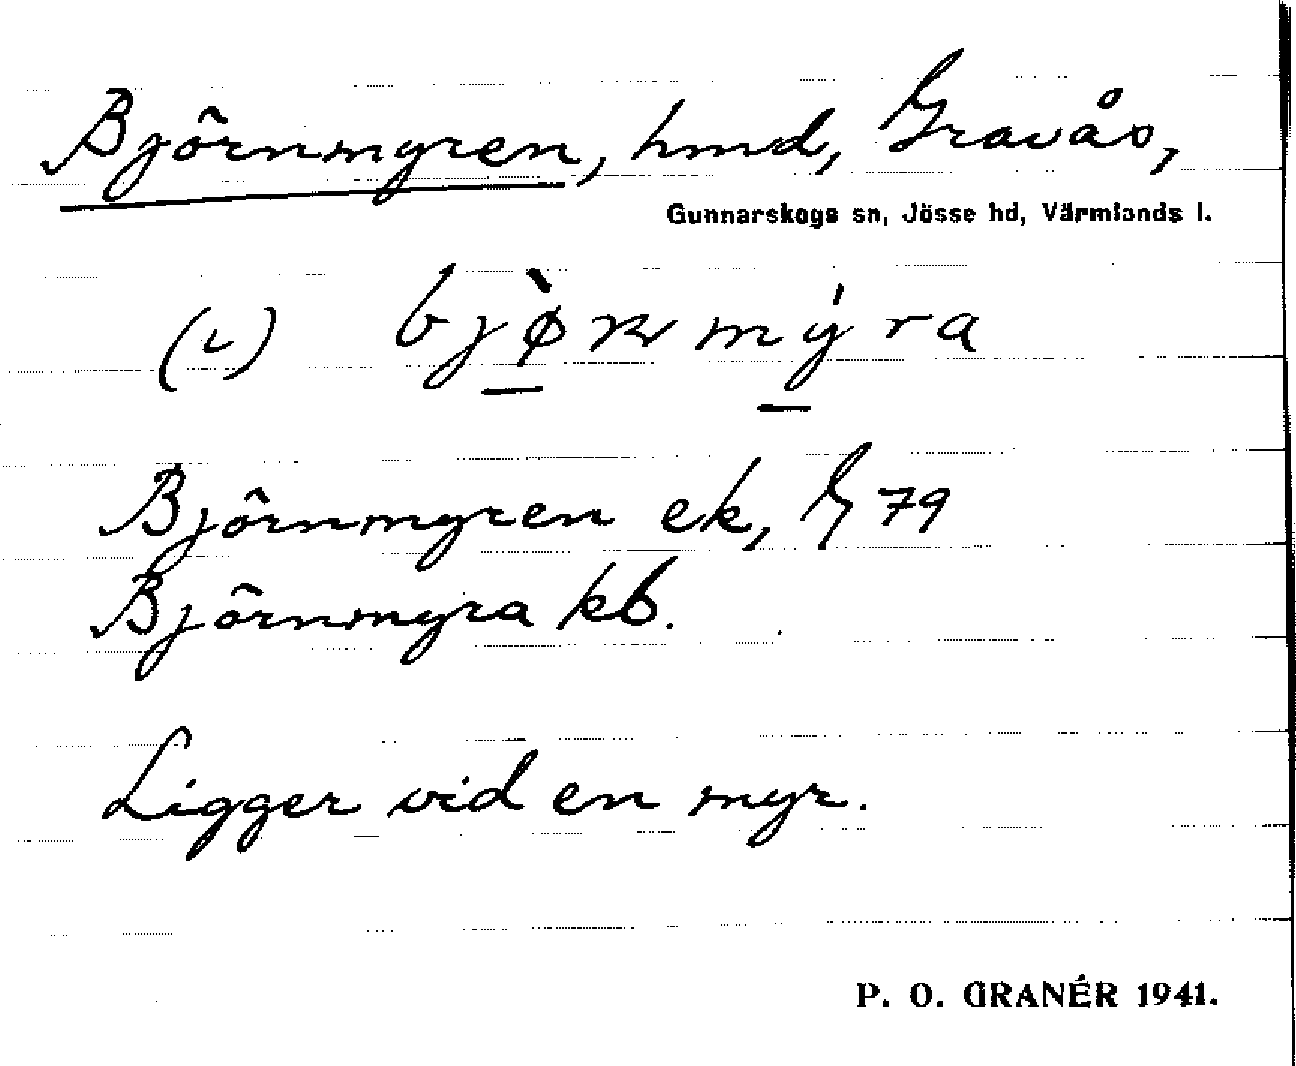 Björnmyren, hmd, Gravås,
Gunnarskogs sn, Jösse hd, Värmlands l.
(ι) bjø̀n mý ra
Björnmyren ek, G 79
Björnmyra kb.
Ligger vid en myr.
P. O. GRANÉR 1941.